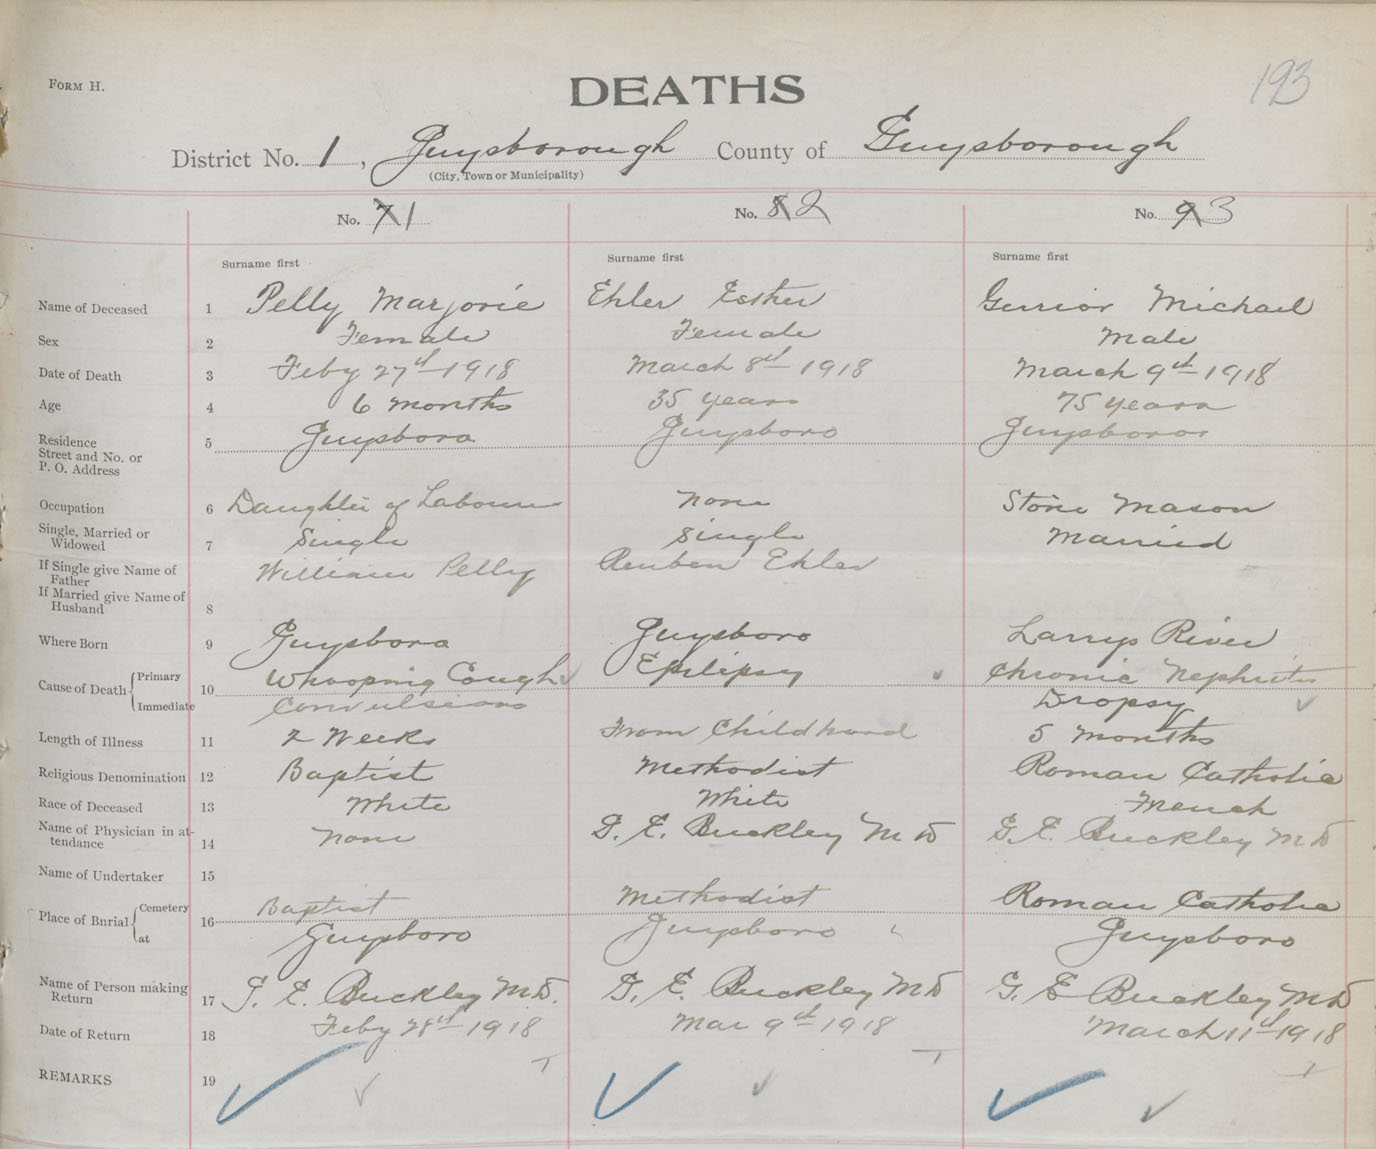 FORM H.
DEATHS
193
District No. 1, Guysborough County of Guysborough
(City, Town or Municipality)
No. 7 1 No. 8 2 No. 9 3
Surname first Surname first Surname first
Name of Deceased 1 Pelly Marjorie Ehler Esther Gerrior Michael
Sex 2 Female Female Male
Date of Death 3 Feby 27th 1918 March 8th 1918 March 9th 1918
Age 4 6 months 35 years 75 years
Residence 5 Guysboro Guysboro Guysboro
Street and No. or
P. O. Address
Occupation 6 Daughter of Labourer None Stone Mason
Single, Married or
Widowed 7 Single Single Married
If Single give Name of
Father William Pelly Reuben Ehler
If Married give Name of
Husband 8
Where Born 9 Guysboro Guysboro Larrys River
Cause of Death Primary 10 Whooping Cough Epilipsy Chronic Nephritis
Immediate Convulsions Dropsy
Length of Illness 11 2 Weeks From Childhood 5 months
Religious Denomination 12 Baptist Methodist Roman Catholic
Race of Deceased 13 White White French
Name of Physician in at-
tendance 14 None G. E. Buckley M D G. E. Buckley M D
Name of Undertaker 15
Place of Burial Cemetery 16 Baptist Methodist Roman Catholic
at Guysboro Guysboro Guysboro
Name of Person making
Return 17 G. E. Buckley M.D. G. E. Buckley M D G. E Buckley M D
Date of Return 18 Feby 28th 1918 Mar 9th 1918 March 11th 1918
REMARKS 19